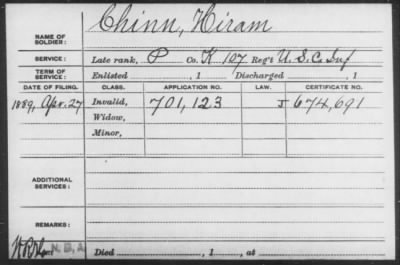 NAME OF SOLDIER: Chinn, Hiram
SERVICE: Late rank, P Co. K 107 Reg't U.S.C. Inf
TERM OF SERVICE: Enlisted , 1 Discharged , 1
DATE OF FILING. CLASS. APPLICATION NO. LAW. CERTIFICATE NO.
1889, Apr. 27 Invalid, 701,123 J 674,691
Widow,
Minor,
ADDITIONAL SERVICES:
REMARKS:
N.B.A. Died , 1 , at